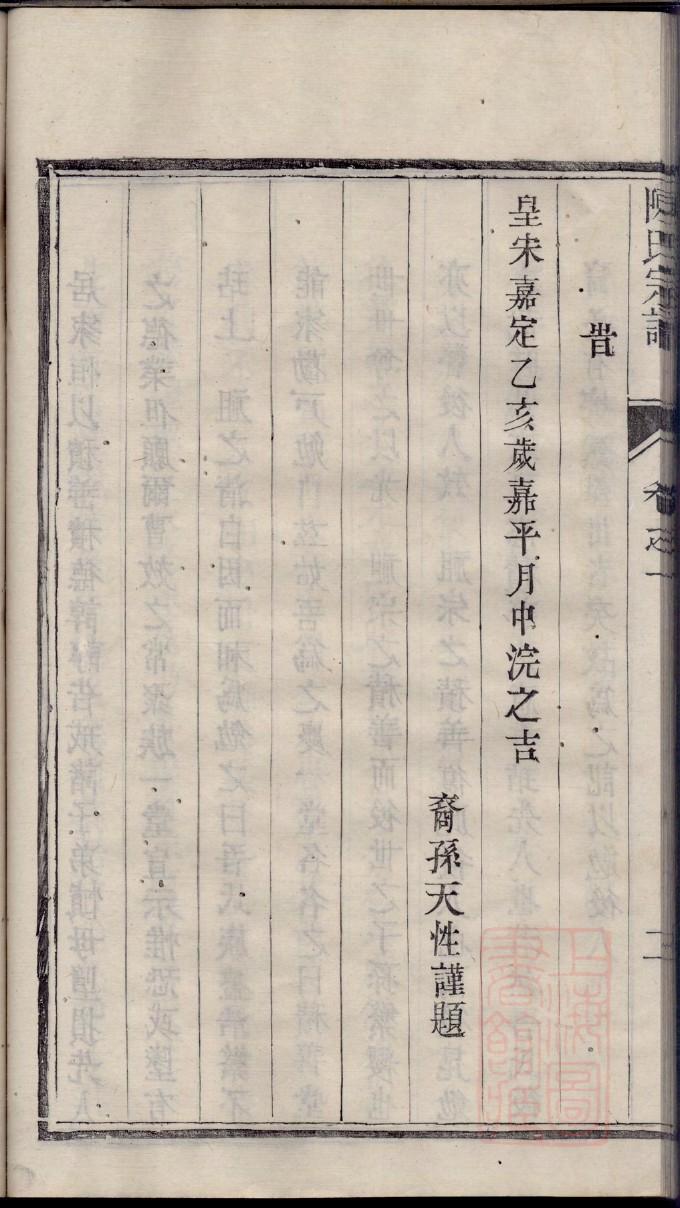 陳氏宗譜
卷之一
二
昔
皇宋嘉定乙亥歲嘉平月中浣之吉
裔孫天性謹題